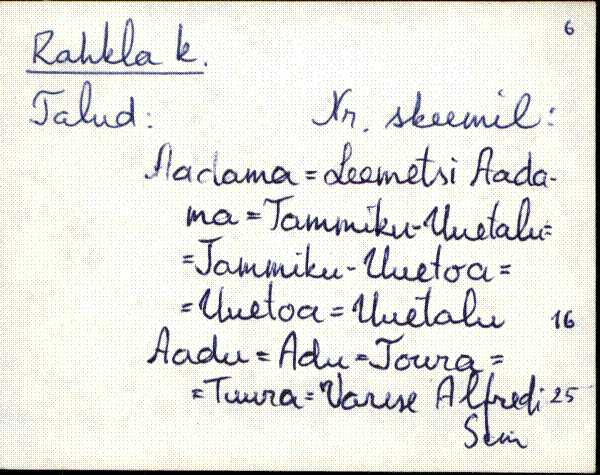 6
Rahkla k.
Talud: Nr. skeemil:
Aadama = Leemetsi Aada-
ma = Tammiku-Uuetalu =
= Tammiku-Uuetoa =
= Uuetoa = Uuetalu 16
Aadu = Adu = Toura =
= Tuura = Varese Alfredi 25